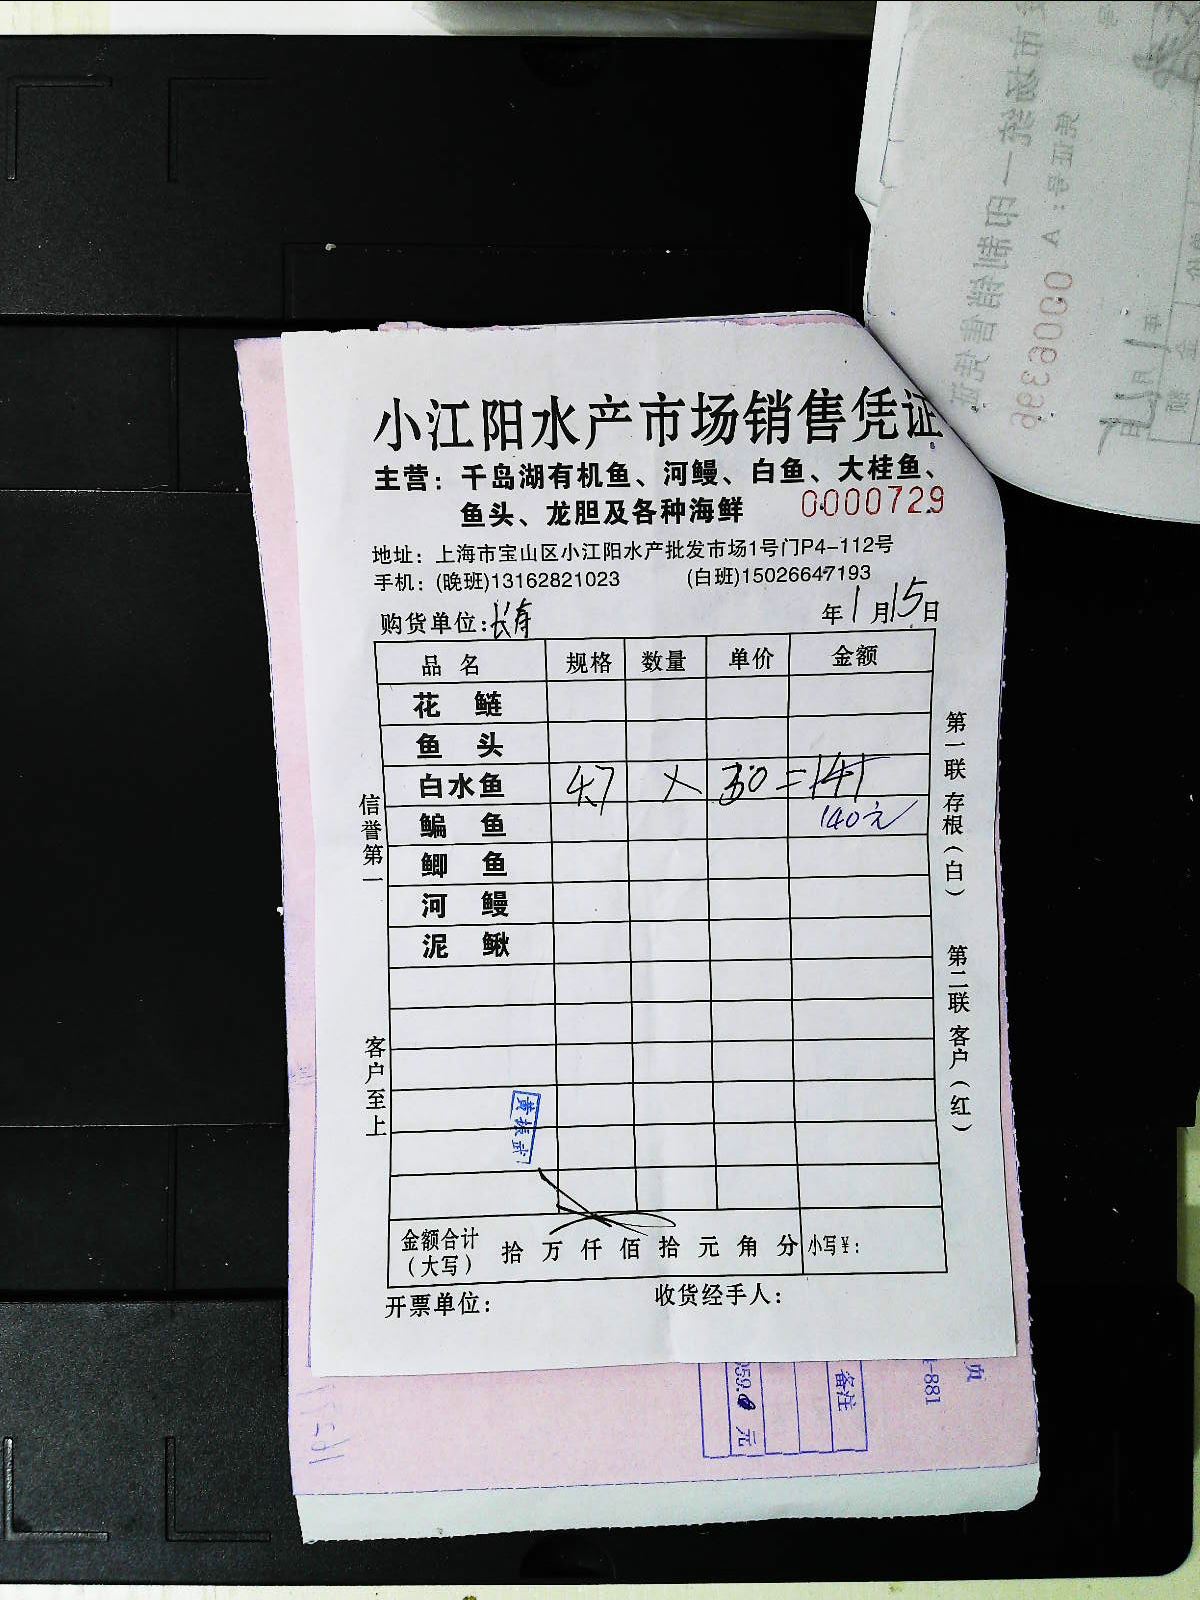 小江阳水产市场销售凭证
主营：千岛湖有机鱼、河鳗、白鱼、大桂鱼、
鱼头、龙胆及各种海鲜 0000729
地址：上海市宝山区小江阳水产批发市场1号门P4-112号
手机：(晚班)13162821023 (白班)15026647193
购货单位：长寿 年1月15日
品名 规格 数量 单价 金额
花鲢
鱼头
白水鱼 4.7 × 30 = 141
鳊鱼 140元
鲫鱼
河鳗
泥鳅
金额合计（大写） 拾 万 仟 佰 拾 元 角 分 小写¥：
开票单位： 收货经手人：
信誉第一
客户至上
第一联 存根（白）
第二联 客户（红）
0006396
备注
元
页
-881